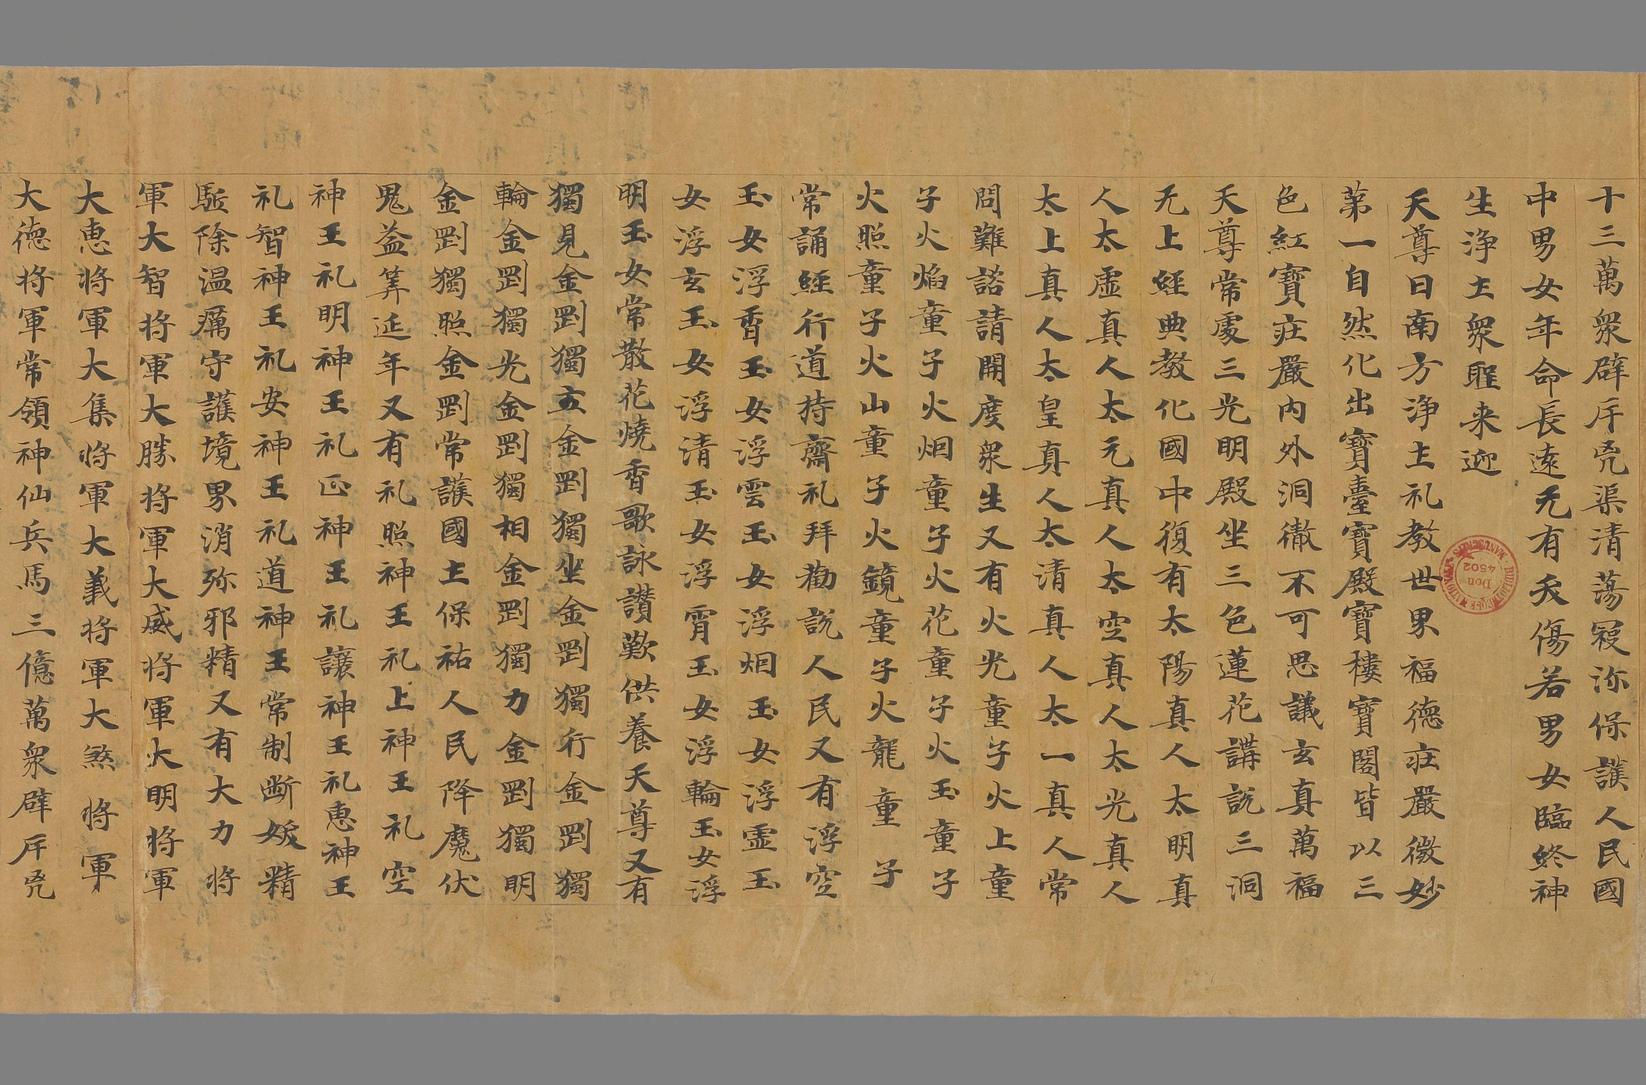 十三萬衆辟斥兇渠清蕩寇沴保護人民國
中男女年命長遠无有夭傷若男女臨終神
生淨土衆聖来迎
天尊曰南方淨土礼教世界福德莊嚴微妙
第一自然化出寶臺寶殿寶樓寶閣皆以三
色紅寶莊嚴内外洞徹不可思議玄真萬福
天尊常處三光明殿坐三色蓮花講說三洞
无上經典教化國中復有太陽真人太明真
人太虛真人太元真人太空真人太光真人
太上真人太皇真人太清真人太一真人常
問難諮請開度衆生又有火光童子火上童
子火焰童子火烟童子火花童子火玉童子
火照童子火山童子火鏡童子火龍童子
常誦經行道持齋礼拜勸說人民又有浮空
玉女浮香玉女浮雲玉女浮烟玉女浮靈玉
女浮玄玉女浮清玉女浮霄玉女浮輪玉女浮
明玉女常散花燒香歌詠讚歎供養天尊又有
獨見金剛獨立金剛獨坐金剛獨行金剛獨
輪金剛獨光金剛獨相金剛獨力金剛獨明
金剛獨照金剛常護國土保祐人民降魔伏
鬼益筭延年又有礼照神王礼上神王礼空
神王礼明神王礼正神王礼讓神王礼惠神王
礼智神王礼安神王礼道神王常制斷妖精
駈除温厲守護境界消弥邪精又有大力將
軍大智將軍大勝將軍大威將軍大明將軍
大惠將軍大集將軍大義將軍大煞將軍
大德將軍常領神仙兵馬三億萬衆辟斥兇
Don
4502